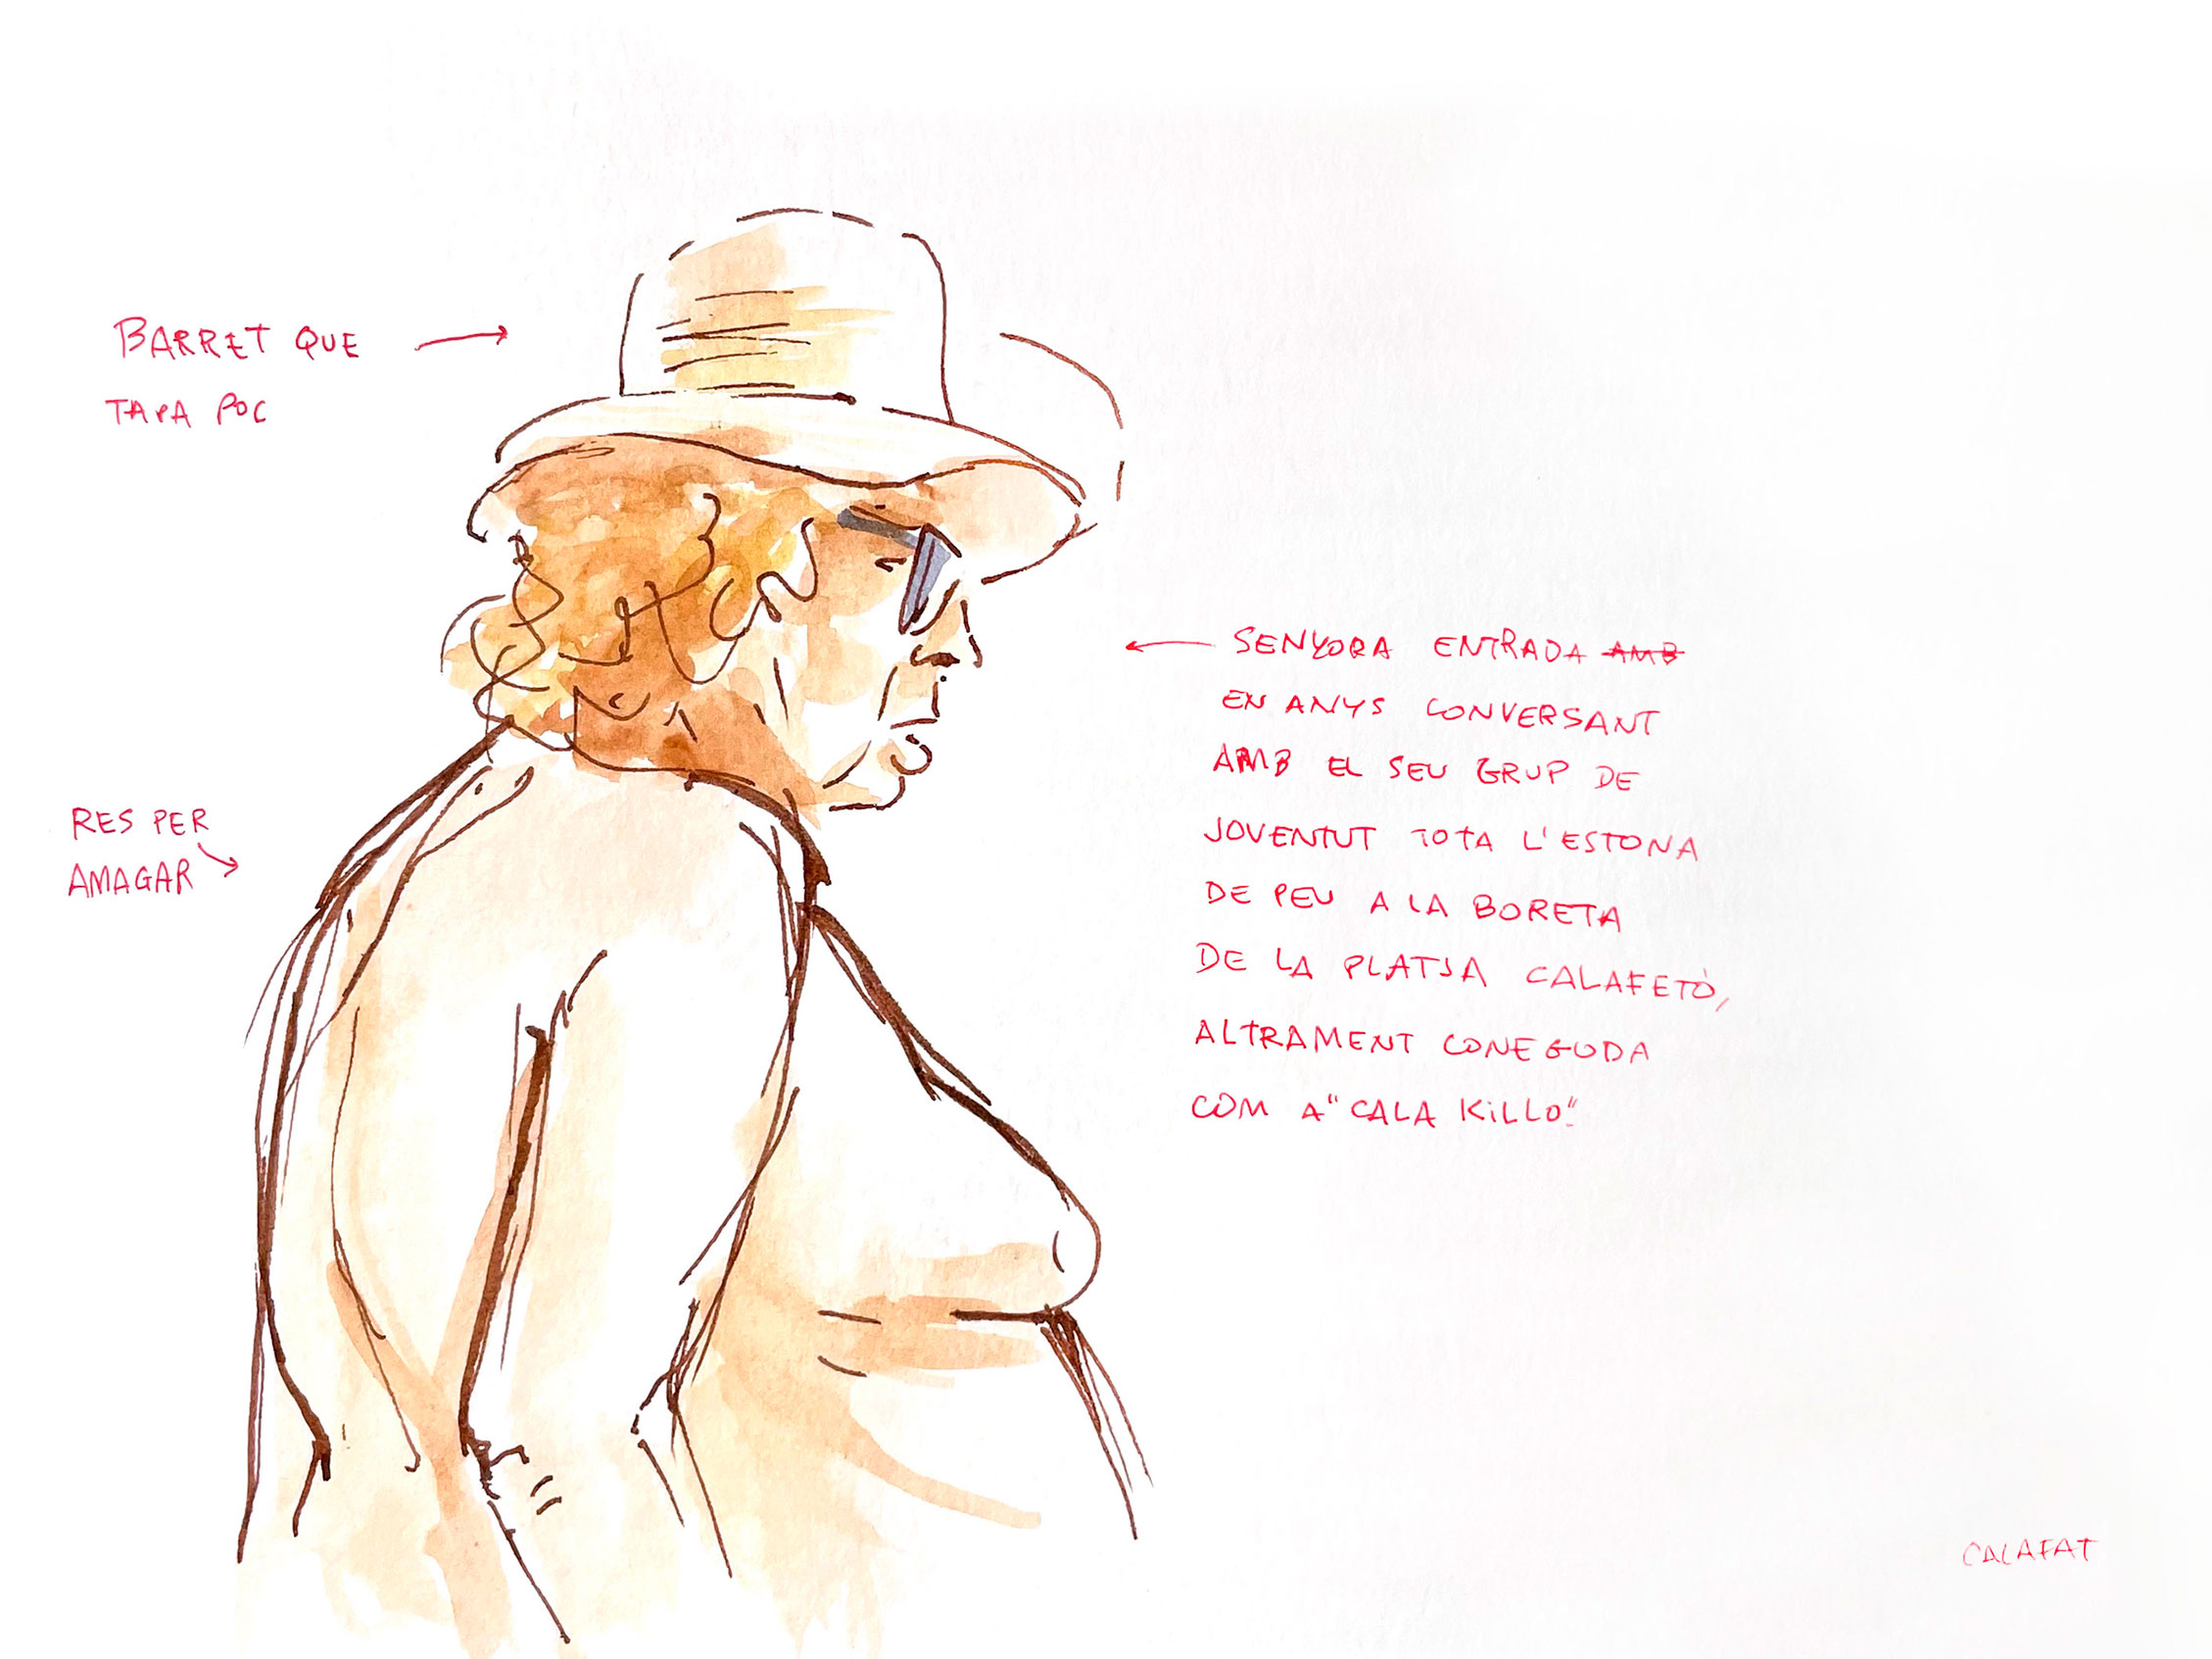 BARRET QUE
TAPA POC
RES PER
AMAGAR
SENYORA ENTRADA AMB
EN ANYS CONVERSANT
AMB EL SEU GRUP DE
JOVENTUT TOTA L'ESTONA
DE PEU A LA BORETA
DE LA PLATJA CALAFETÓ,
ALTRAMENT CONEGUDA
COM A "CALA KiLLO".
CALAFAT